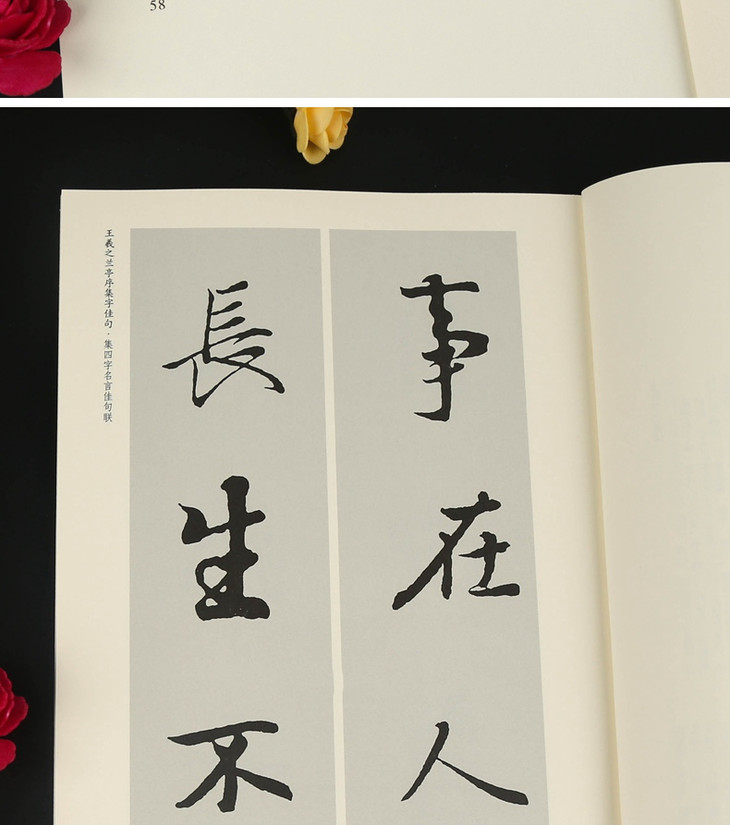 58
事在人
長生不
王羲之兰亭序集字佳句·集四字名言佳句联